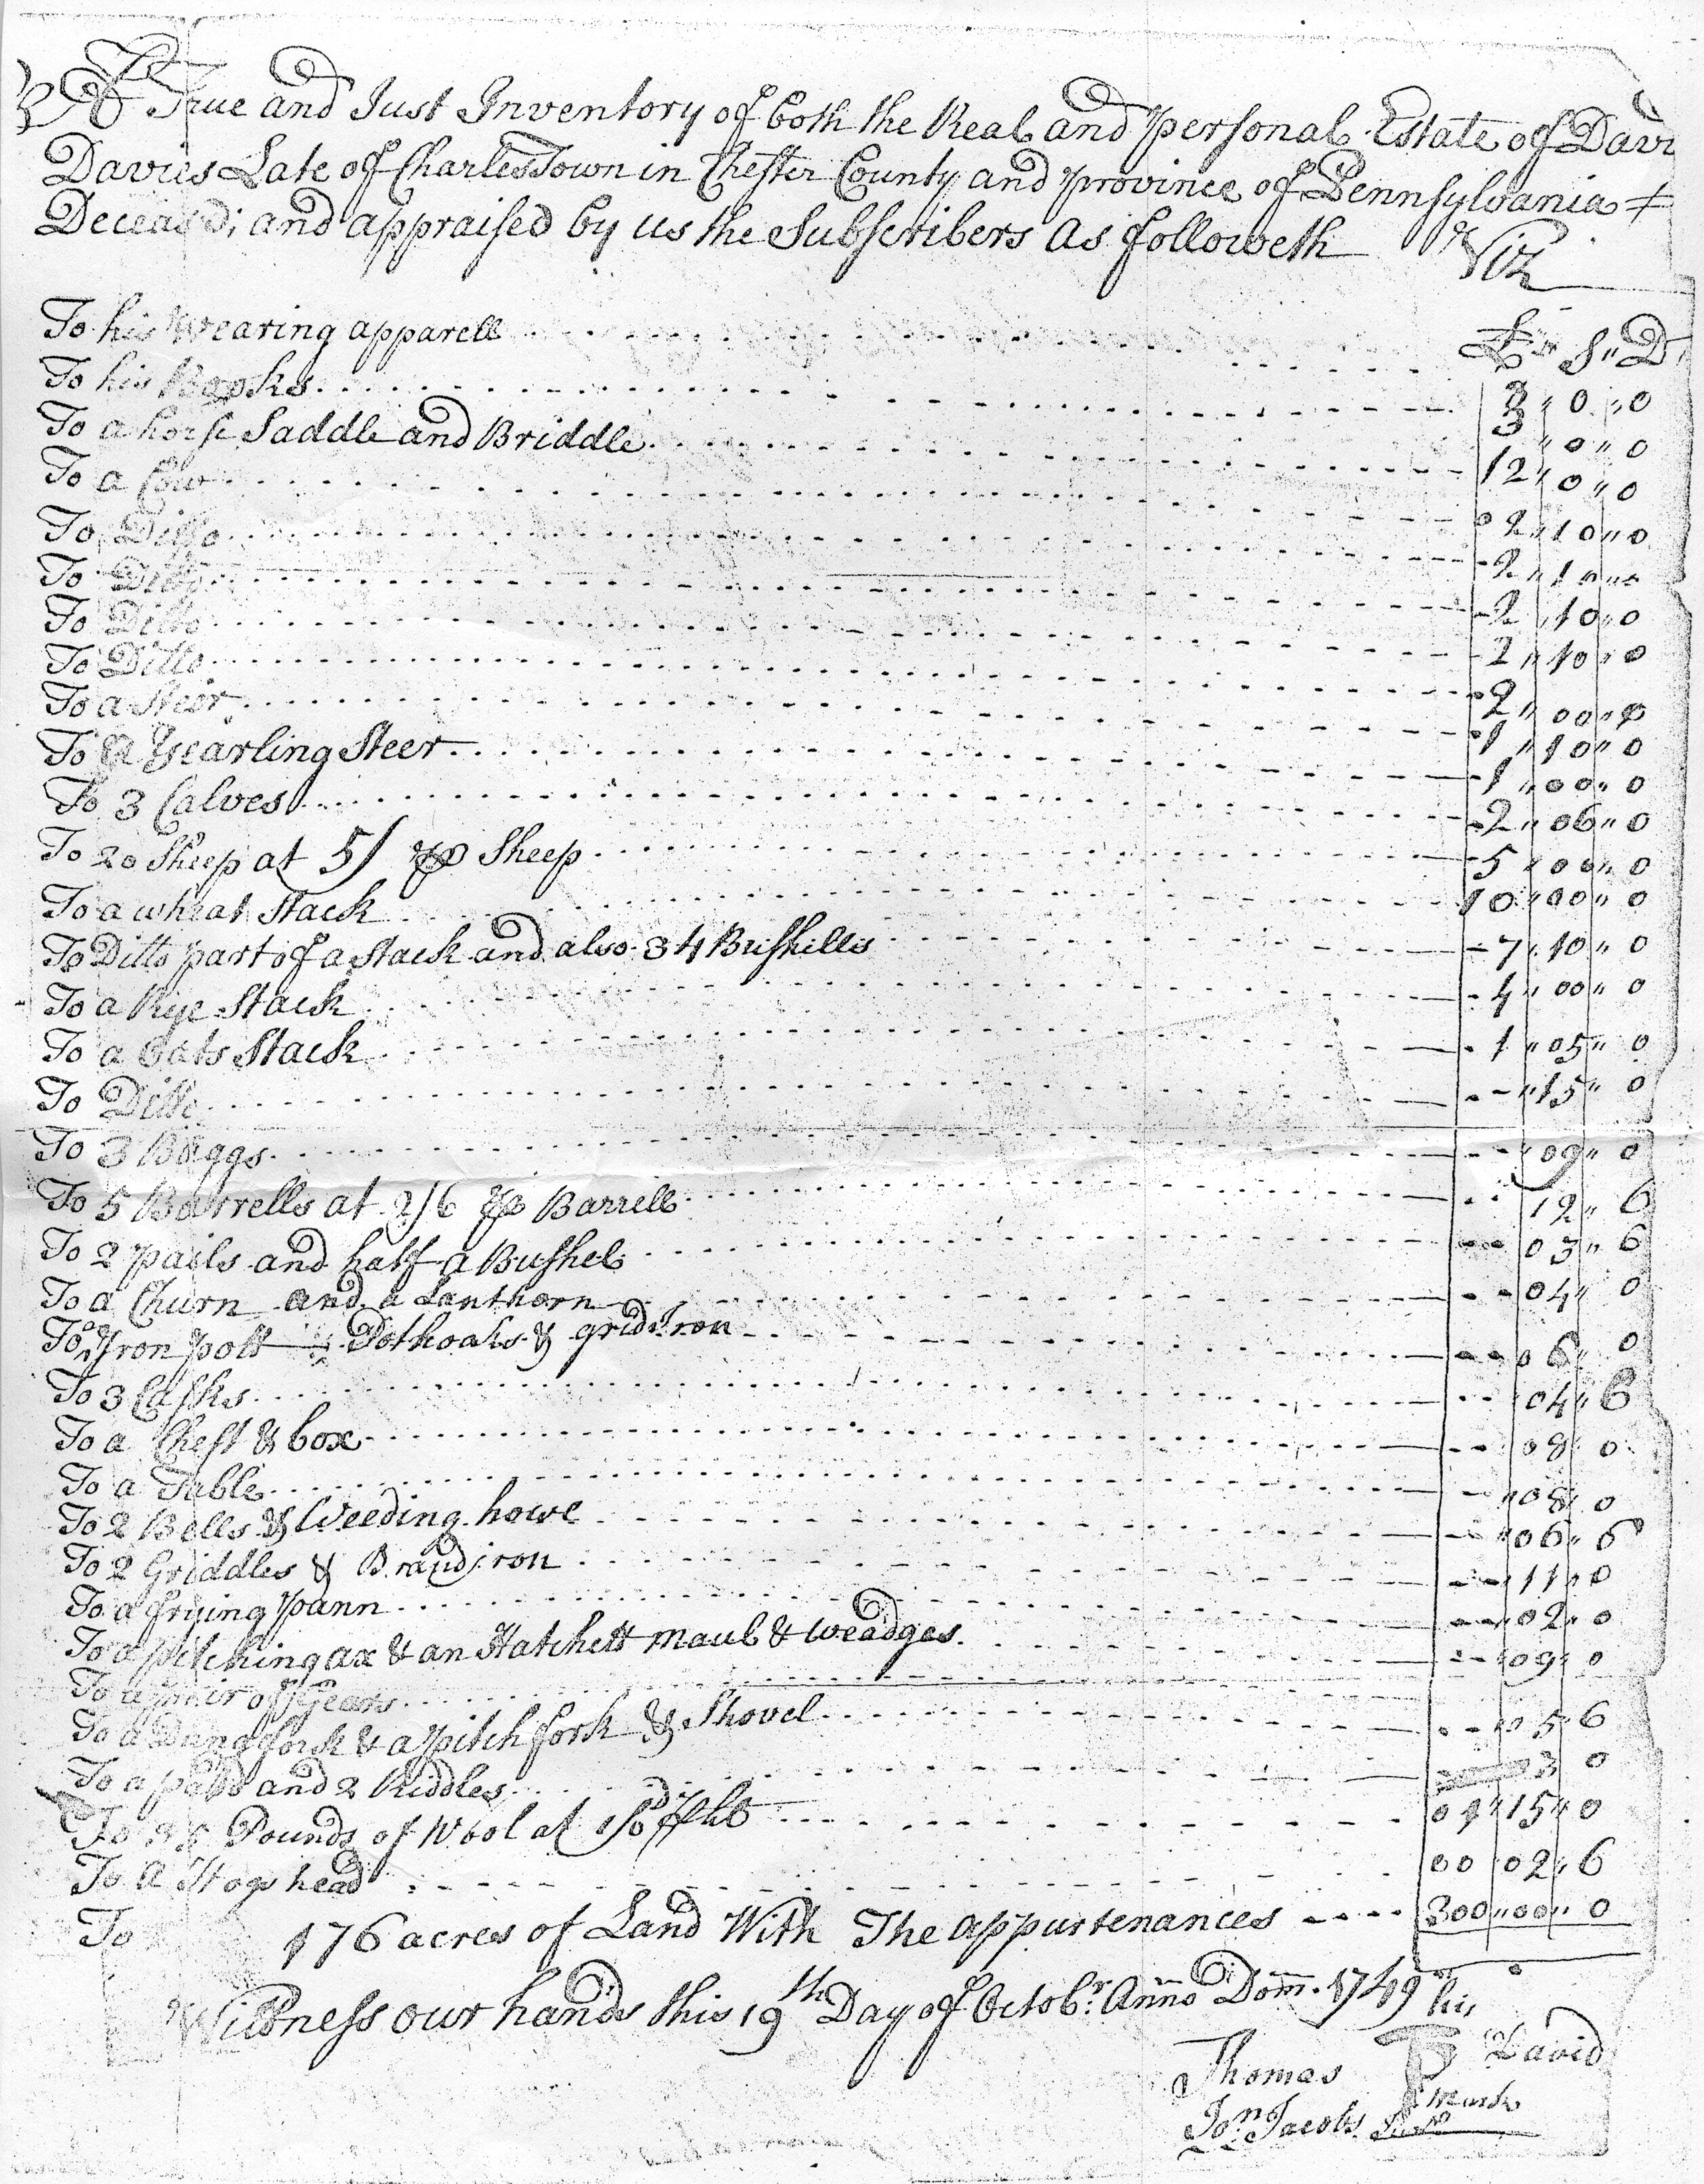 A True and Just Inventory of both the Real and personal Estate of Davi
Davies Late of CharlesTown in Chester County and province of Pennsylvania
Deceasd; and appraised by us the Subscribers As followeth Viz
£ S D
To his Wearing apparell 3 " 0 " 0
To his Books 3 " 0 " 0
To a horse Saddle and Briddle 12 " 0 " 0
To a Cow 2 " 10 " 0
To Ditto 2 " 10 " 0
To Ditto 2 " 10 " 0
To Ditto 2 " 10 " 0
To Ditto 2 " 00 " 0
To a Steer 1 " 10 " 0
To a Yearling Steer 1 " 00 " 0
To 3 Calves 2 " 06 " 0
To 20 Sheep at 5/ ⅌ Sheep 5 " 00 " 0
To a wheat Stack 10 " 00 " 0
To Ditto part of a Stack and also 34 Bushells 7 " 10 " 0
To a Rye Stack 4 " 00 " 0
To a Oats Stack 1 " 05 " 0
To Ditto " 15 " 0
To 3 Baggs " 09 " 0
To 5 Barrells at 2/6 ⅌ Barrell 12 " 6
To 2 pails and half a Bushel 03 " 6
To a Churn and a Lanthorn 04 " 0
To an Yron pott Pothooks & grid Iron 06 " 0
To 3 Casks 04 " 6
To a Chest & box 08 " 0
To a Table " 08 " 0
To 2 Bells & Weeding howe " 06 " 6
To 2 Griddles & Brandiron " 11 " 0
To a frying pann " 02 " 0
To a pitching ax & an Hatchett maul & weadges " 09 " 0
To a pair of Gears 5 " 6
To a Dung fork & a pitch fork & Shovel 3 0
To a and 2 Riddles
To 35 Pounds of Wool at 1/0 ⅌ lb 01 " 15 " 0
To a Hogshead 00 " 02 " 6
To 176 acres of Land With The appurtenances 300 " 00 " 0
Wittness our hands this 19th Day of Octobr. Anno Dom. 1749
his
Thomas T David
mark
Jon. Jacobs